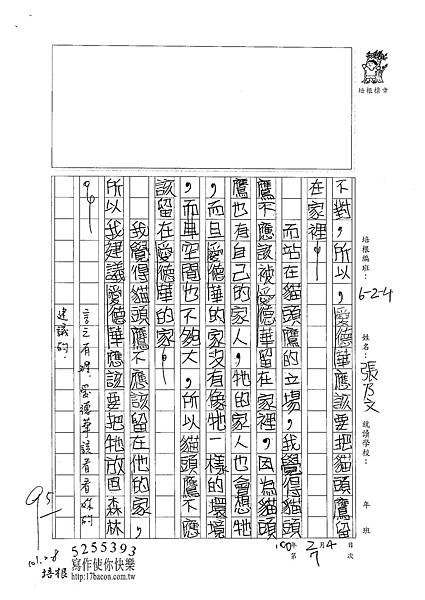 培根標章
培根編班：6-2-4
姓名：張乃文
就讀學校：
年 班
100年2月4日
第7次
不對，所以，愛德華應該要把貓頭鷹留
在家裡。
而站在貓頭鷹的立場，我覺得貓頭
鷹不應該被愛德華留在家裡，因為貓頭
鷹也有自己的家人，牠的家人也會想牠
，而且愛德華的家沒有像牠一樣的環境
，而車空間也不夠大，所以貓頭鷹不應
該留在愛德華的家。
我覺得貓頭鷹不應該留在他的家，
所以我建議愛德華應該要把牠放回森林
。
言之有理，愛德華該看看妳的
建議的。
95
101.2.8
培根
5255393
寫作使你快樂
http://17bacon.com.tw/